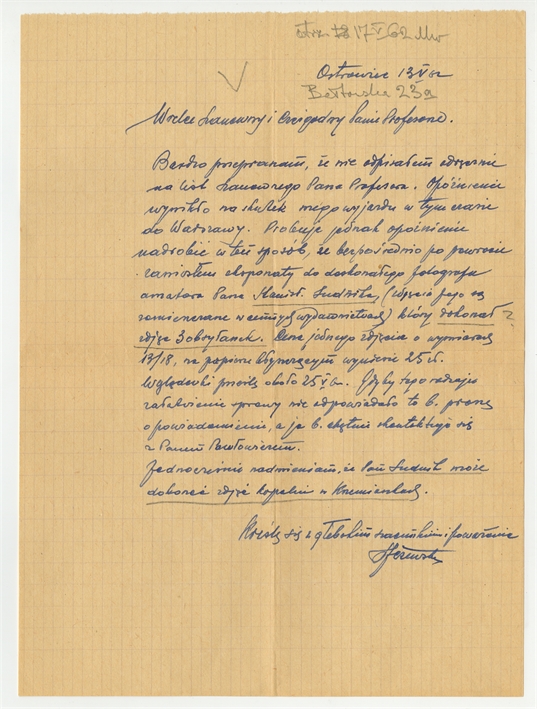 otrz. 18 17 V 62 Mw
Ostrowiec 13 V 62
Bałtowska 23a
Wielce Szanowny i Czcigodny Panie Profesorze.
Bardzo przepraszam, że nie odpisałem odręcznie
na list Szanownego Pana Profesora. Opóźnienie
wynikło na skutek mego wyjazdu w tym czasie
do Warszawy. Probuję jednak opóźnienie
nadrobić w ten sposób, że bezpośrednio po powrocie
zaniosłem eksponaty do doskonałego fotografa
amatora Pana Stanisł. Sudnika, (zdjęcia jego są
zamieszczane w cennych wydawnictwach) który dokonał ?
zdjęć 3 obsydianek. Cena jednego zdjęcia o wymiarach
13/18, na papierze błyszczącym wyniesie 25 zł.
Wglądówki prześlę około 25 V br. Gdyby tego rodzaju
załatwienie sprawy nie odpowiadało to b. proszę
o powiadomienie, a ja b. chętnie skontaktuję się
z Panem Pawłowiczem.
Jednocześnie nadmieniam, że Pan Sudnik może
dokonać zdjęć kopalni w Krzemionkach.
Kreślę się z głębokim szacunkiem i poważaniem